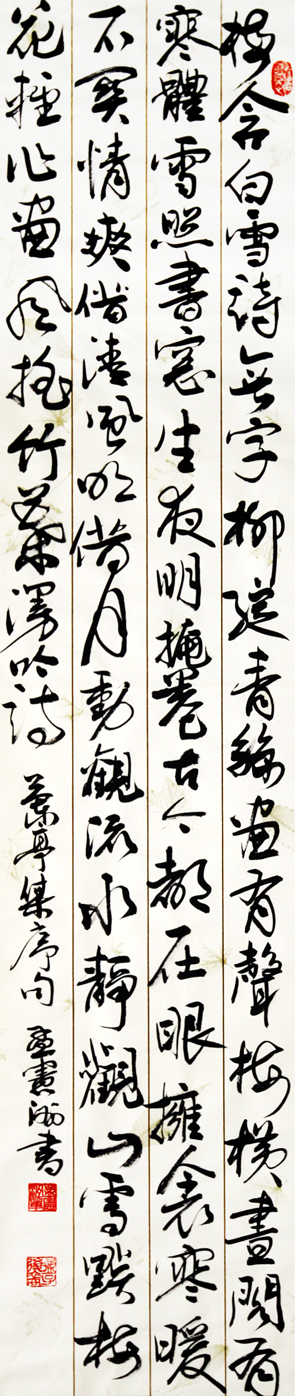 梅含白雪詩無字柳綻青絲畫有聲梅横畫閣有
寒體雪照書窓生夜明掩卷古今都在眼擁衾寒暖
不關情爽借清風明借月動觀流水靜觀山雪點梅
花輕作畫風搖竹葉漫吟詩 蘭亭集序句 書